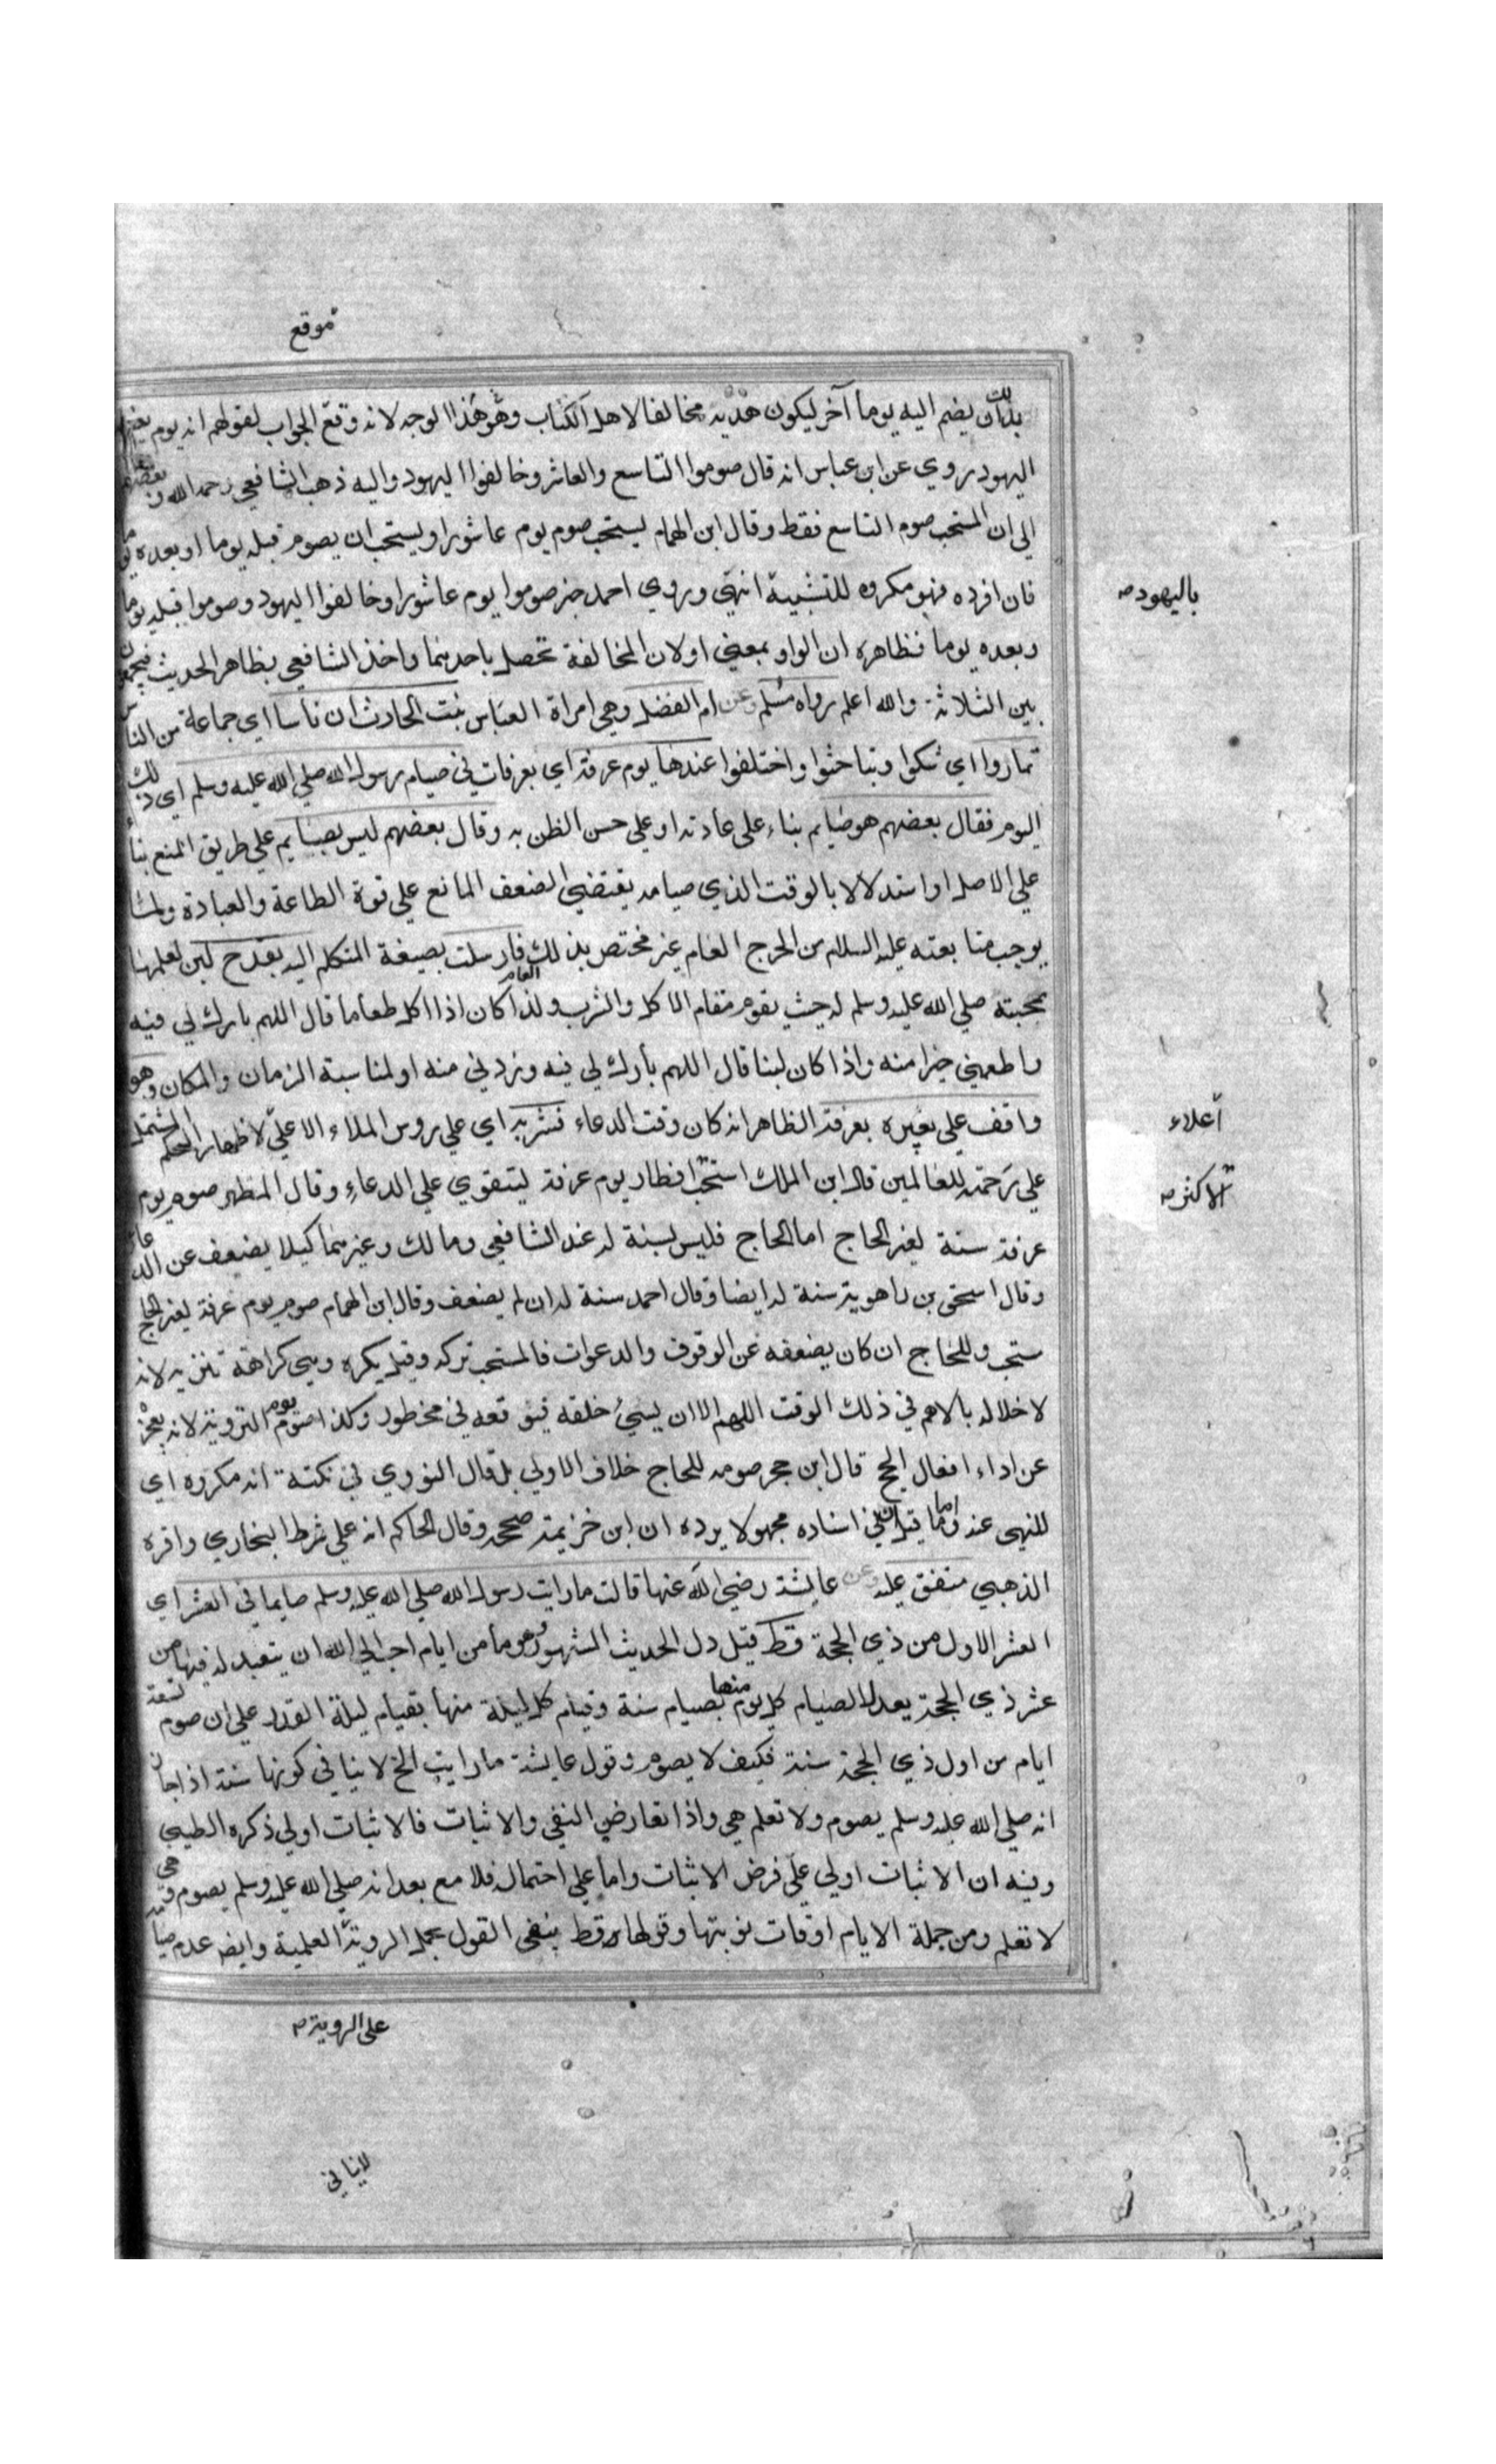 موقع
بذلك ان يضم اليه يوما آخر ليكون هديه مخالفا لاهل الكتاب وهو هذا الوجه لانه وقع الجواب لقولهم انه يوم
اليهود روي عن ابن عباس انه قال صوموا التاسع والعاشر وخالفوا اليهود واليه ذهب الشافعي رحمه الله وبعضهم
الي ان المستحب صوم التاسع فقط وقال ابن الهمام يستحب صوم يوم عاشورا ويستحب ان يصوم قبله يوما او بعده
فان افرده فهو مكروه للتشبيه انتهي وروي احمد خبر صوموا يوم عاشورا وخالفوا اليهود وصوموا قبله يوما
باليهود
وبعده يوما فظاهره ان الواو بمعني او لان المخالفة تحصل باحدهما واخذ الشافعي بظاهر الحديث فيجمعون
بين الثلاثة والله اعلم رواه مسلم وعن ام الفضل وهي امراة العباس بنت الحارث ان ناسا اي جماعة من الناس
تماروا اي شكوا وتباحثوا واختلفوا عندها يوم عرفة اي بعرفات في صيام رسول الله صلي الله عليه وسلم اي ذلك
اليوم فقال بعضهم هو صايم بناء علي عادته او علي حسن الظن به وقال بعضهم ليس بصايم علي طريق المنع بنا
علي الاصل او استدلالا بالوقت الذي صيامه يقتضي الضعف المانع علي قوة الطاعة والعبادة ولما
يوجب متابعته عليه السلام من الحرج العام غير مختص بذلك فارسلت بصيغة المتكلم اليه بقدح لبن لعلمها
بمحبته صلي الله عليه وسلم له حيث يقوم مقام الاكل والشرب ولذا كان اذا اكل طعاما قال اللهم بارك لي فيه
واطعمني خيرا منه واذا كان لبنا قال اللهم بارك لي فيه وزدني منه او لمناسبة الزمان والمكان وهو
واقف علي بعيره بعرفة الظاهر انه كان وقت الدعاء فشربه اي علي روس الملاء الاعلي لاظهار الحكم المشتمل
أعلاء
علي رحمة للعالمين قال ابن الملك استحب افطار يوم عرفة ليتقوي علي الدعاء وقال المظهر صوم يوم
الاكثر
عرفة سنة لغير الحاج اما الحاج فليس لسنة له عند الشافعي ومالك وغيرهما كيلا يضعف عن الدعا
وقال اسحق بن راهوية سنة له ايضا وقال احمد سنة له ان لم يضعف وقال ابن الهمام صوم يوم عرفة لغير الحاج
ستحب وللحاج ان كان يضعفه عن الوقوف والدعوات فالمستحب تركه وقيل يكره وهي كراهة تنزيه لانه
لاخلاله بالاهم في ذلك الوقت اللهم الا ان يسيء خلقه فيوقعه في محظور وكذا صوم يوم التروية لانه يعجزه
عن اداء افعال الحج قال ابن حجر صومه للحاج خلاف الاولي بل قال النووي في نكتة انه مكروه اي
للنهي عنه واما قيل ان في اسناده مجهولا يرده ان ابن خزيمة صححه وقال الحاكم انه علي شرط البخاري واقره
الذهبي متفق عليه وعن عايشة رضي الله عنها قالت ما رايت رسول الله صلي الله عليه وسلم صايما في العشر اي
العشر الاول من ذي الحجة قط قيل دل الحديث المشهور وهو ما من ايام احب الي الله ان يتعبد له فيها من
عشر ذي الحجة يعدل الصيام كل يوم منها بصيام سنة وقيام كل ليلة منها بقيام ليلة القدر علي ان صوم تسعة
ايام من اول ذي الحجة سنة فكيف لا يصوم وقول عايشة ما رايت الخ لا ينافي كونها سنة اذا جاز
انه صلي الله عليه وسلم يصوم ولا تعلم هي واذا تعارض النفي والاثبات فالاثبات اولي ذكره الطيبي
وفيه ان الاثبات اولي علي فرض الاثبات واما علي احتمال فلا مع بعد انه صلي الله عليه وسلم يصوم وهي
لا تعلم ومن جملة الايام اوقات نوبتها وقولها قط ينفي القول بحمل الروية العلمية وايض عدم صيا
علي الروية
لاينافي